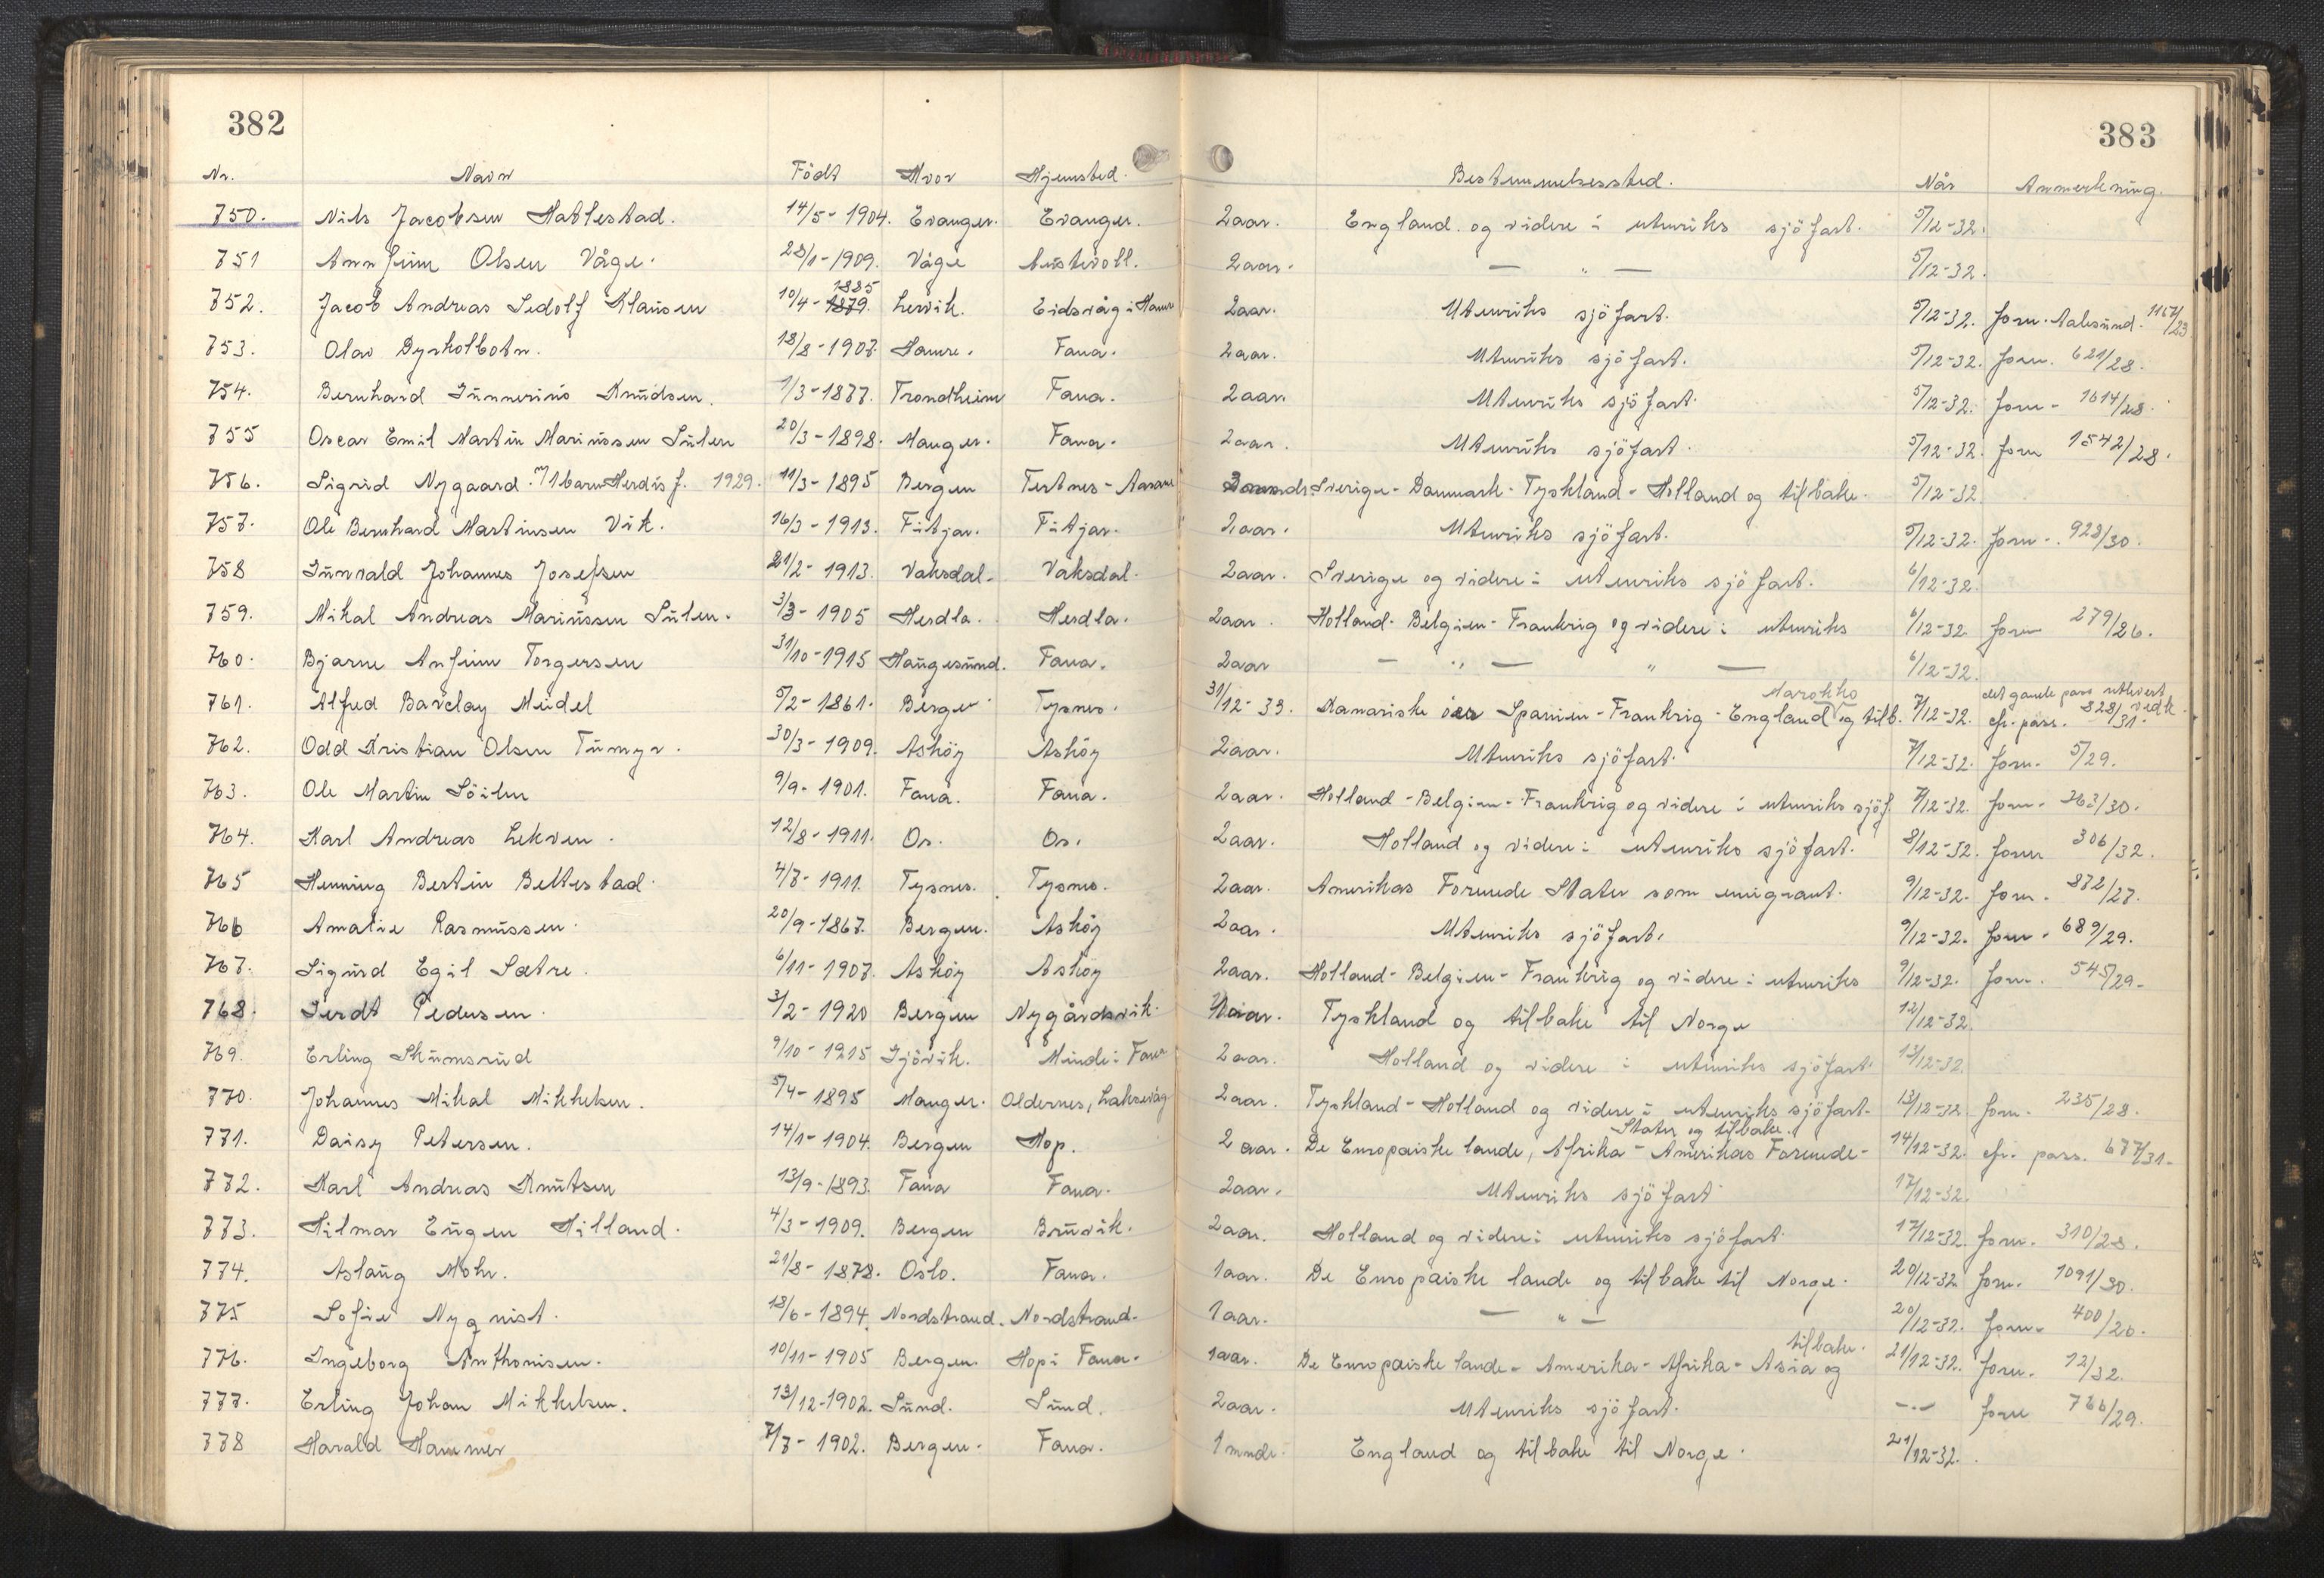 382
383
Nr. Navn Född Hvor Hjemsted. Bestemmelsessted. Når Anmerkning.
750. Nils Jacobsen Hatlestad. 14/5-1904. Evanger. Evanger. 2 aar. England og videre i utenriks sjöfart. 5/12-32.
751 Annfinn Olsen Våge. 28/1-1909. Våge Austevoll. 2 aar. — " — 5/12-32.
752. Jacob Andreas Sedolf Klausen 10/4-1879. 1885 Lervik. Eidsvåg i Hamre 2 aar. Utenriks sjöfart. 5/12-32. forn. Aalesund. 1167/23
753. Olav Dyrkolbotn. 18/8-1907. Hamre. Fana. 2 aar. Utenriks sjöfart. 5/12-32. forn. 621/28.
754. Bernhard Knudsen. 1/3-1877. Trondheim Fana. 2 aar. Utenriks sjöfart. 5/12-32. forn. 1614/28.
755 Oscar Emil Martin Marinussen Sulen 20/3-1898. Manger. Fana. 2 aar. Utenriks sjöfart. 5/12-32. forn 1542/28.
756. Sigrid Nygaard. m/1 barn Herdis f. 1929. 11/3-1895 Bergen Tertnes - Aasane Sverige - Danmark - Tyskland - Holland og tilbake. 5/12-32
757. Ole Bernhard Martinsen Vik. 16/3-1913. Fitjar. Fitjar. 2 aar. Utenriks sjöfart. 5/12-32. forn. 928/30.
758 Gunvald Johannes Josefsen 21/2-1913. Vaksdal. Vaksdal. 2 aar. Sverige og videre i utenriks sjöfart. 6/12-32.
759. Mikal Andreas Marinussen Sulen. 3/3-1905 Herdla. Herdla. 2 aar. Holland - Belgien - Frankrig og videre i utenriks 6/12-32. forn 279/26.
760. Bjarne Anfinn Torgersen 31/10-1915 Haugesund. Fana. 2 aar — " — " — 6/12-32.
761. Alfred Barclay Meidel 5/2-1861. Bergen Tysnes. 31/12-33. Kanariske öer Spanien - Frankrig - England Marokko og tilb. 7/12-32. det gamle pass utlevert vedk. cfr. pass. 828/31.
762. Odd Kristian Olsen Tümyr. 30/3-1909. Asköy Asköy 2 aar. Utenriks sjöfart. 7/12-32. forn. 5/29.
763. Ole Martin Söilen 9/9-1901. Fana. Fana. 2 aar. Holland - Belgien - Frankrig og videre i utenriks sjöf. 7/12-32. forn. 763/30.
764. Karl Andreas Lekven. 12/8-1911. Os. Os. 2 aar. Holland og videre i utenriks sjöfart. 8/12-32. forn 306/32.
765 Henning Bertin Beltestad. 4/7-1911. Tysnes. Tysnes. 2 aar. Amerikas Forenede Stater som emigrant. 9/12-32. forn. 872/27.
766 Amalie Rasmussen. 20/9-1867. Bergen. Asköy 2 aar. Utenriks sjöfart. 9/12-32. forn. 689/29.
767. Sigurd Egil Sætre. 6/11-1907. Asköy Asköy 2 aar. Holland - Belgien - Frankrig og videre i utenriks 9/12-32. forn. 545/29.
768. Gerdt Pedersen. 3/2-1920 Bergen Nygårdsvik. aar. Tyskland og tilbake til Norge 12/12-32.
769. Erling Skumsrud 9/10-1915 Gjövik. Minde i Fana 2 aar. Holland og videre i utenriks sjöfart. 13/12-32.
770. Johannes Mikal Mikkelsen. 5/4-1895 Manger. Oldernes, Laksevåg 2 aar. Tyskland - Holland og videre i utenriks sjöfart. 13/12-32 forn. 235/28.
771. Daisy Petersen. 14/1-1904. Bergen Hop. 2 aar. De Europæiske lande, Afrika - Amerikas Forenede - Stater og tilbake. 14/12-32. cfr. pass. 677/31.
772. Karl Andreas Knutsen 13/9-1893. Fana Fana. 2 aar. Utenriks sjöfart 17/12-32.
773. Hilmar Eugen Hilland. 4/3-1909. Bergen Bruvik. 2 aar. Holland og videre i utenriks sjöfart. 17/12-32. forn. 310/28.
774. Aslaug Mohr. 21/8-1878. Oslo. Fana. 1 aar. De Europæiske lande og tilbake til Norge. 20/12-32 forn. 1091/30.
775 Sofie Nyqvist. 18/6-1894. Nordstrand. Nordstrand. 1 aar. — " — 20/12-32. forn. 400/20.
776. Ingeborg Anthonisen. 10/11-1905 Bergen. Hop i Fana. 1 aar. De Europæiske lande - Amerika - Afrika - Asia og tilbake. 21/12-32. forn. 12/32.
777. Erling Johan Mikkelsen. 13/12-1902. Sund. Sund. 2 aar. Utenriks sjöfart. -"- forn 766/29.
778 Harald Hammer 7/7-1902. Bergen. Fana. 1 mnde. England og tilbake til Norge. 21/12-32.